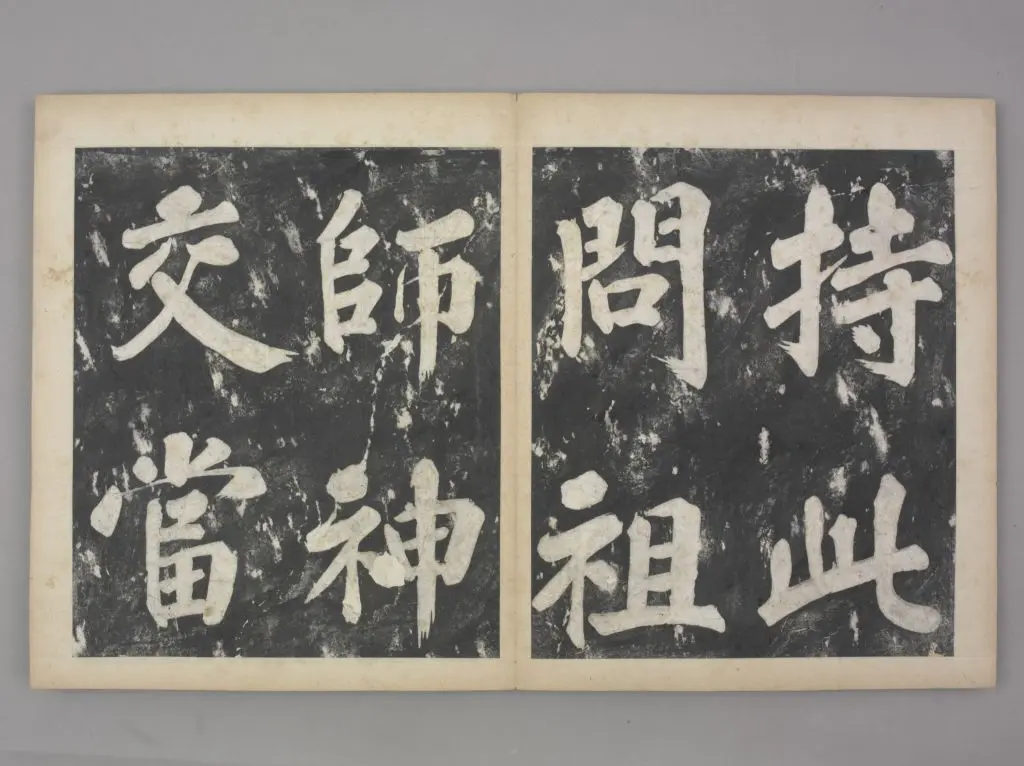 持此
問祖
師神
交當